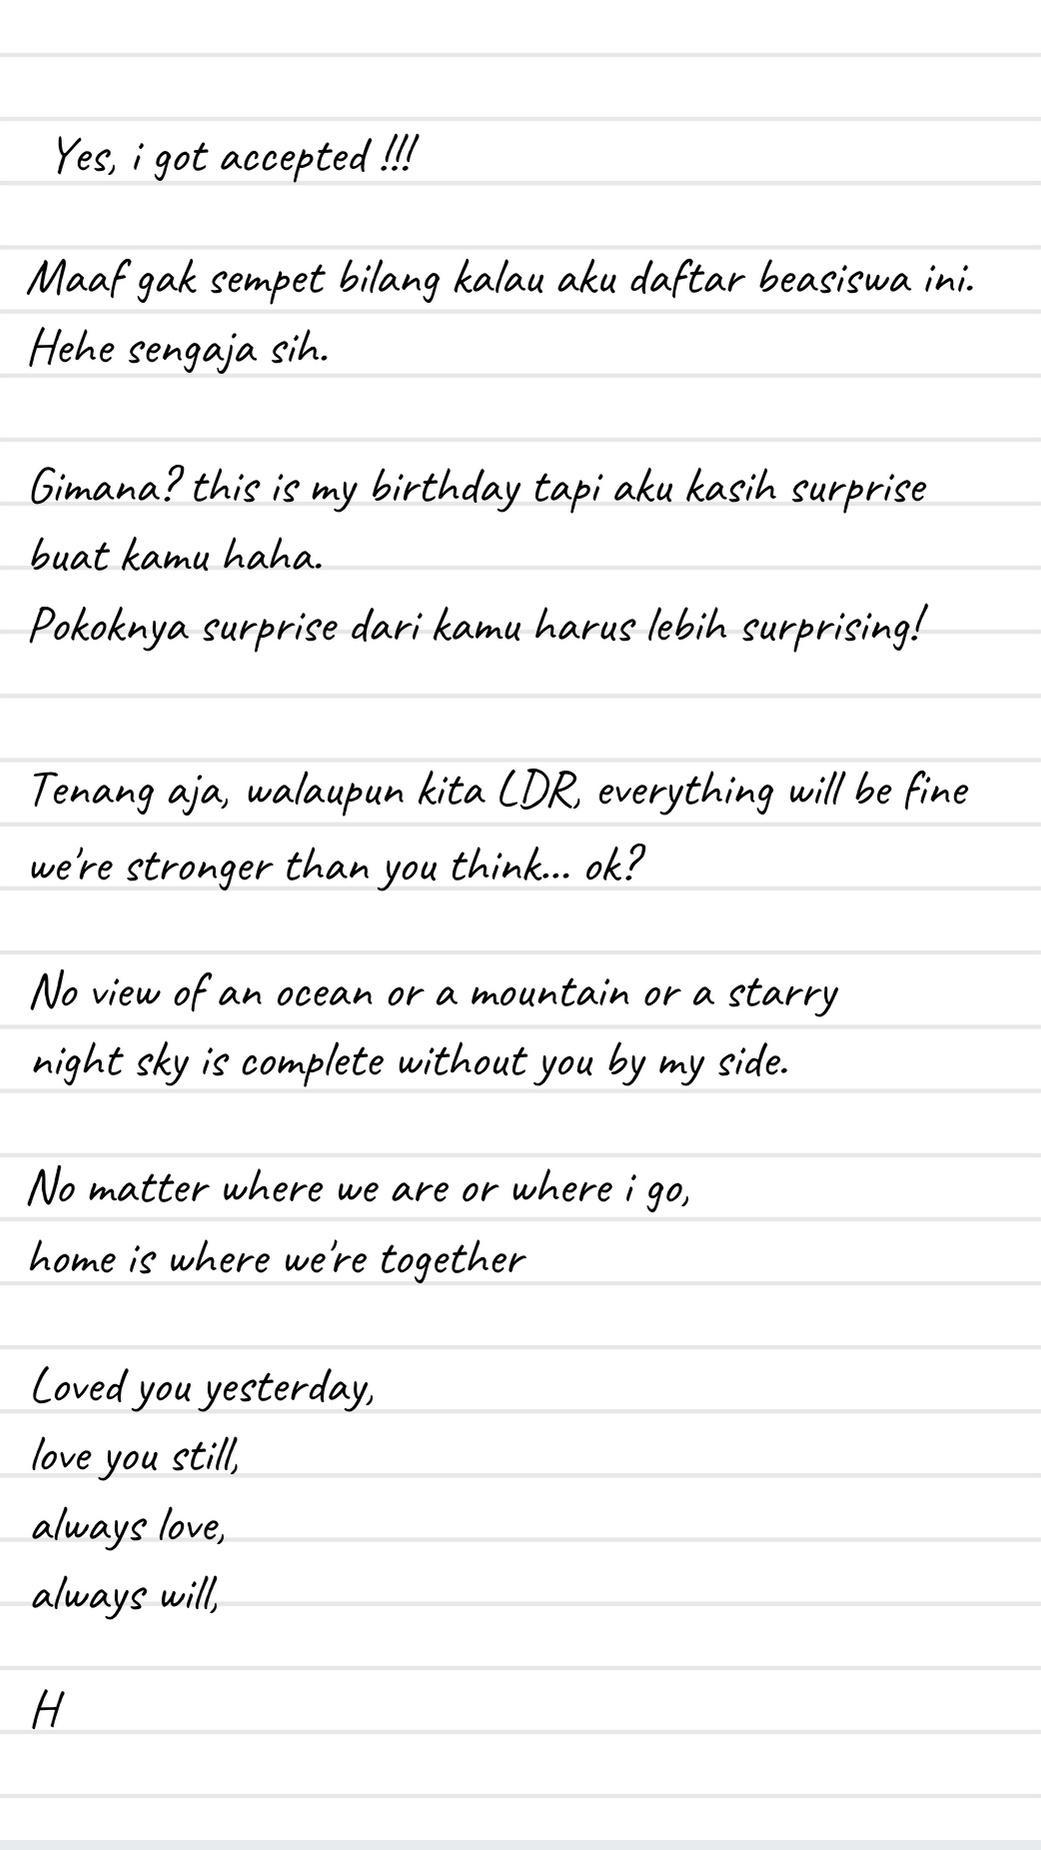 Yes, i got accepted !!!
Maaf gak sempet bilang kalau aku daftar beasiswa ini.
Hehe sengaja sih.
Gimana? this is my birthday tapi aku kasih surprise
buat kamu haha.
Pokoknya surprise dari kamu harus lebih surprising!
Tenang aja, walaupun kita LDR, everything will be fine
we're stronger than you think... ok?
No view of an ocean or a mountain or a starry
night sky is complete without you by my side.
No matter where we are or where i go,
home is where we're together
Loved you yesterday,
love you still,
always love,
always will,
H